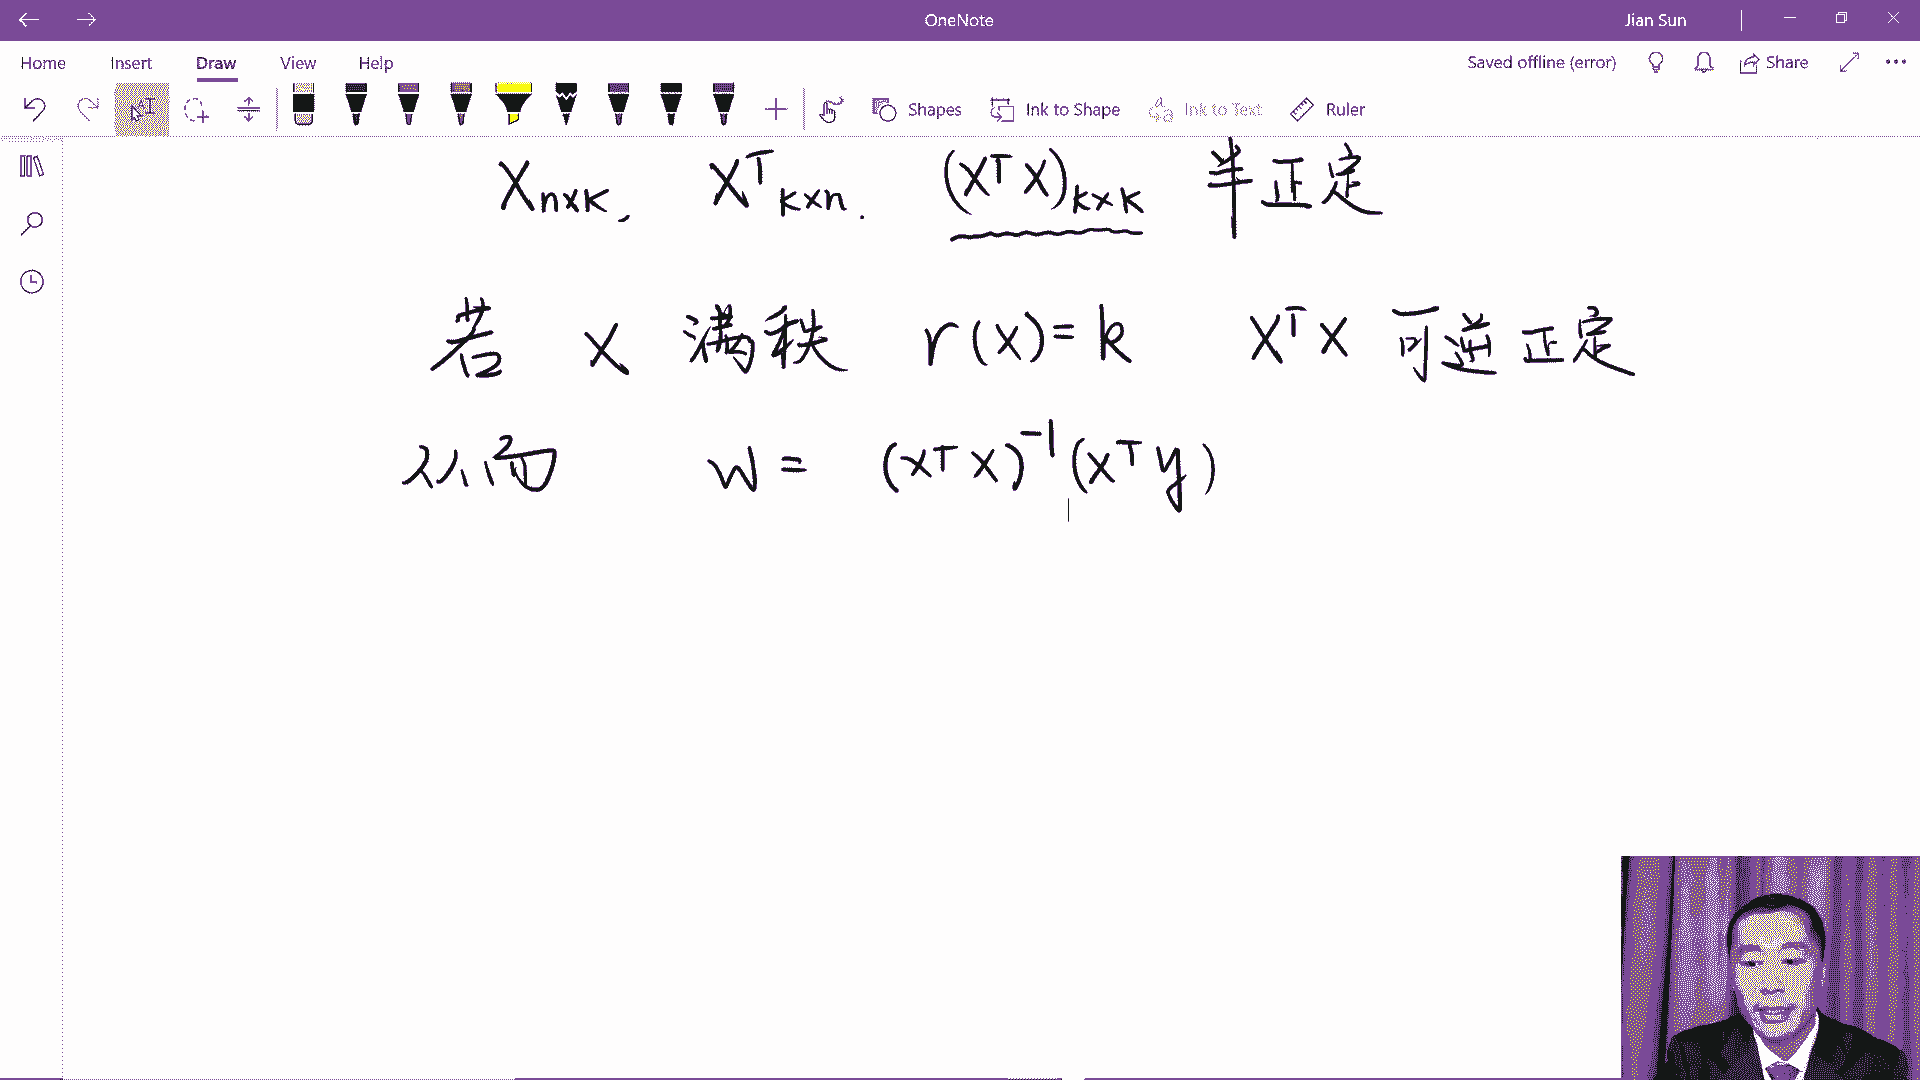 OneNote
Jian Sun
Home Insert Draw View Help
Saved offline (error) Share
Shapes Ink to Shape Ink to Text Ruler
Xn×k, Xᵀk×n. (XᵀX)k×k 半正定
若 X 满秩 r(X)=k XᵀX 可逆正定
从而 w = (XᵀX)⁻¹(Xᵀy)